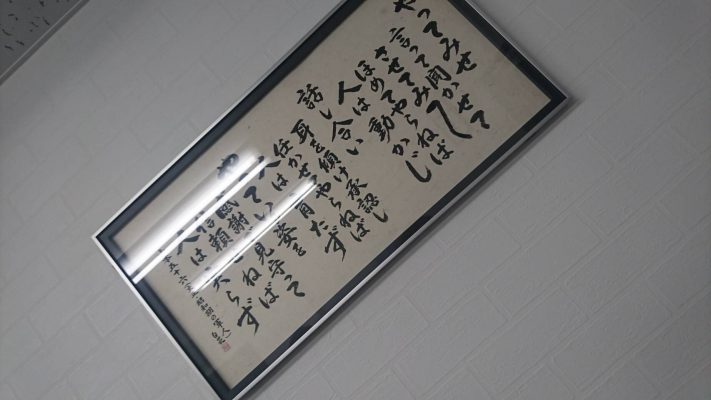 やってみせ
言って聞かせて
させてみて
ほめてやらねば
人は動かじ
話し合い
耳を傾け承認し
任かせ やらねば
人は育たず
やっている
姿を感謝で見守って
信頼 ねば
人は実らず
本五十六 昭和期の軍人